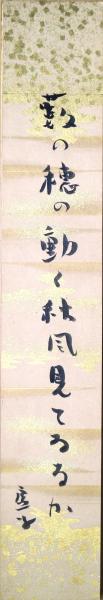 藪の穂の動く秋風見てゐるか
虚子